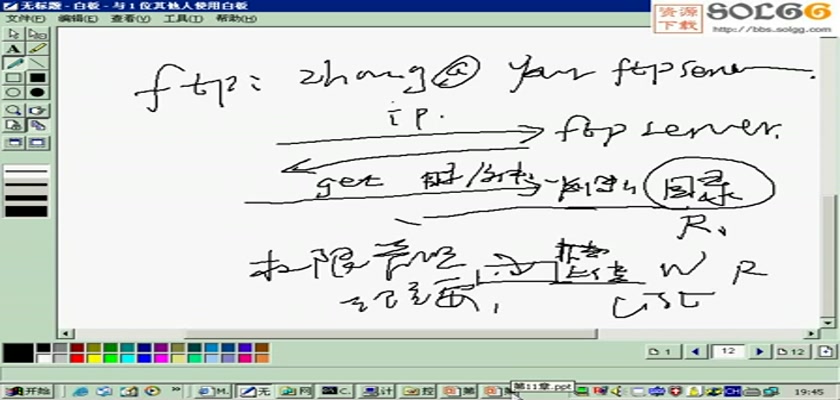 无标题 - 白板 - 与 1 位其他人使用白板
文件(F) 编辑(E) 查看(V) 工具(T) 帮助(H)
资源下载 SOLGG
http://bbs.solgg.com
ftp: zhang@ your ftpserver
ip.
ftp server.
get 图录
R.
权限管理 W R
至关重要, LIST
1 12 12
开始 M. 无 网 C. 计 控 第 第 第11章.ppt CH 19:45